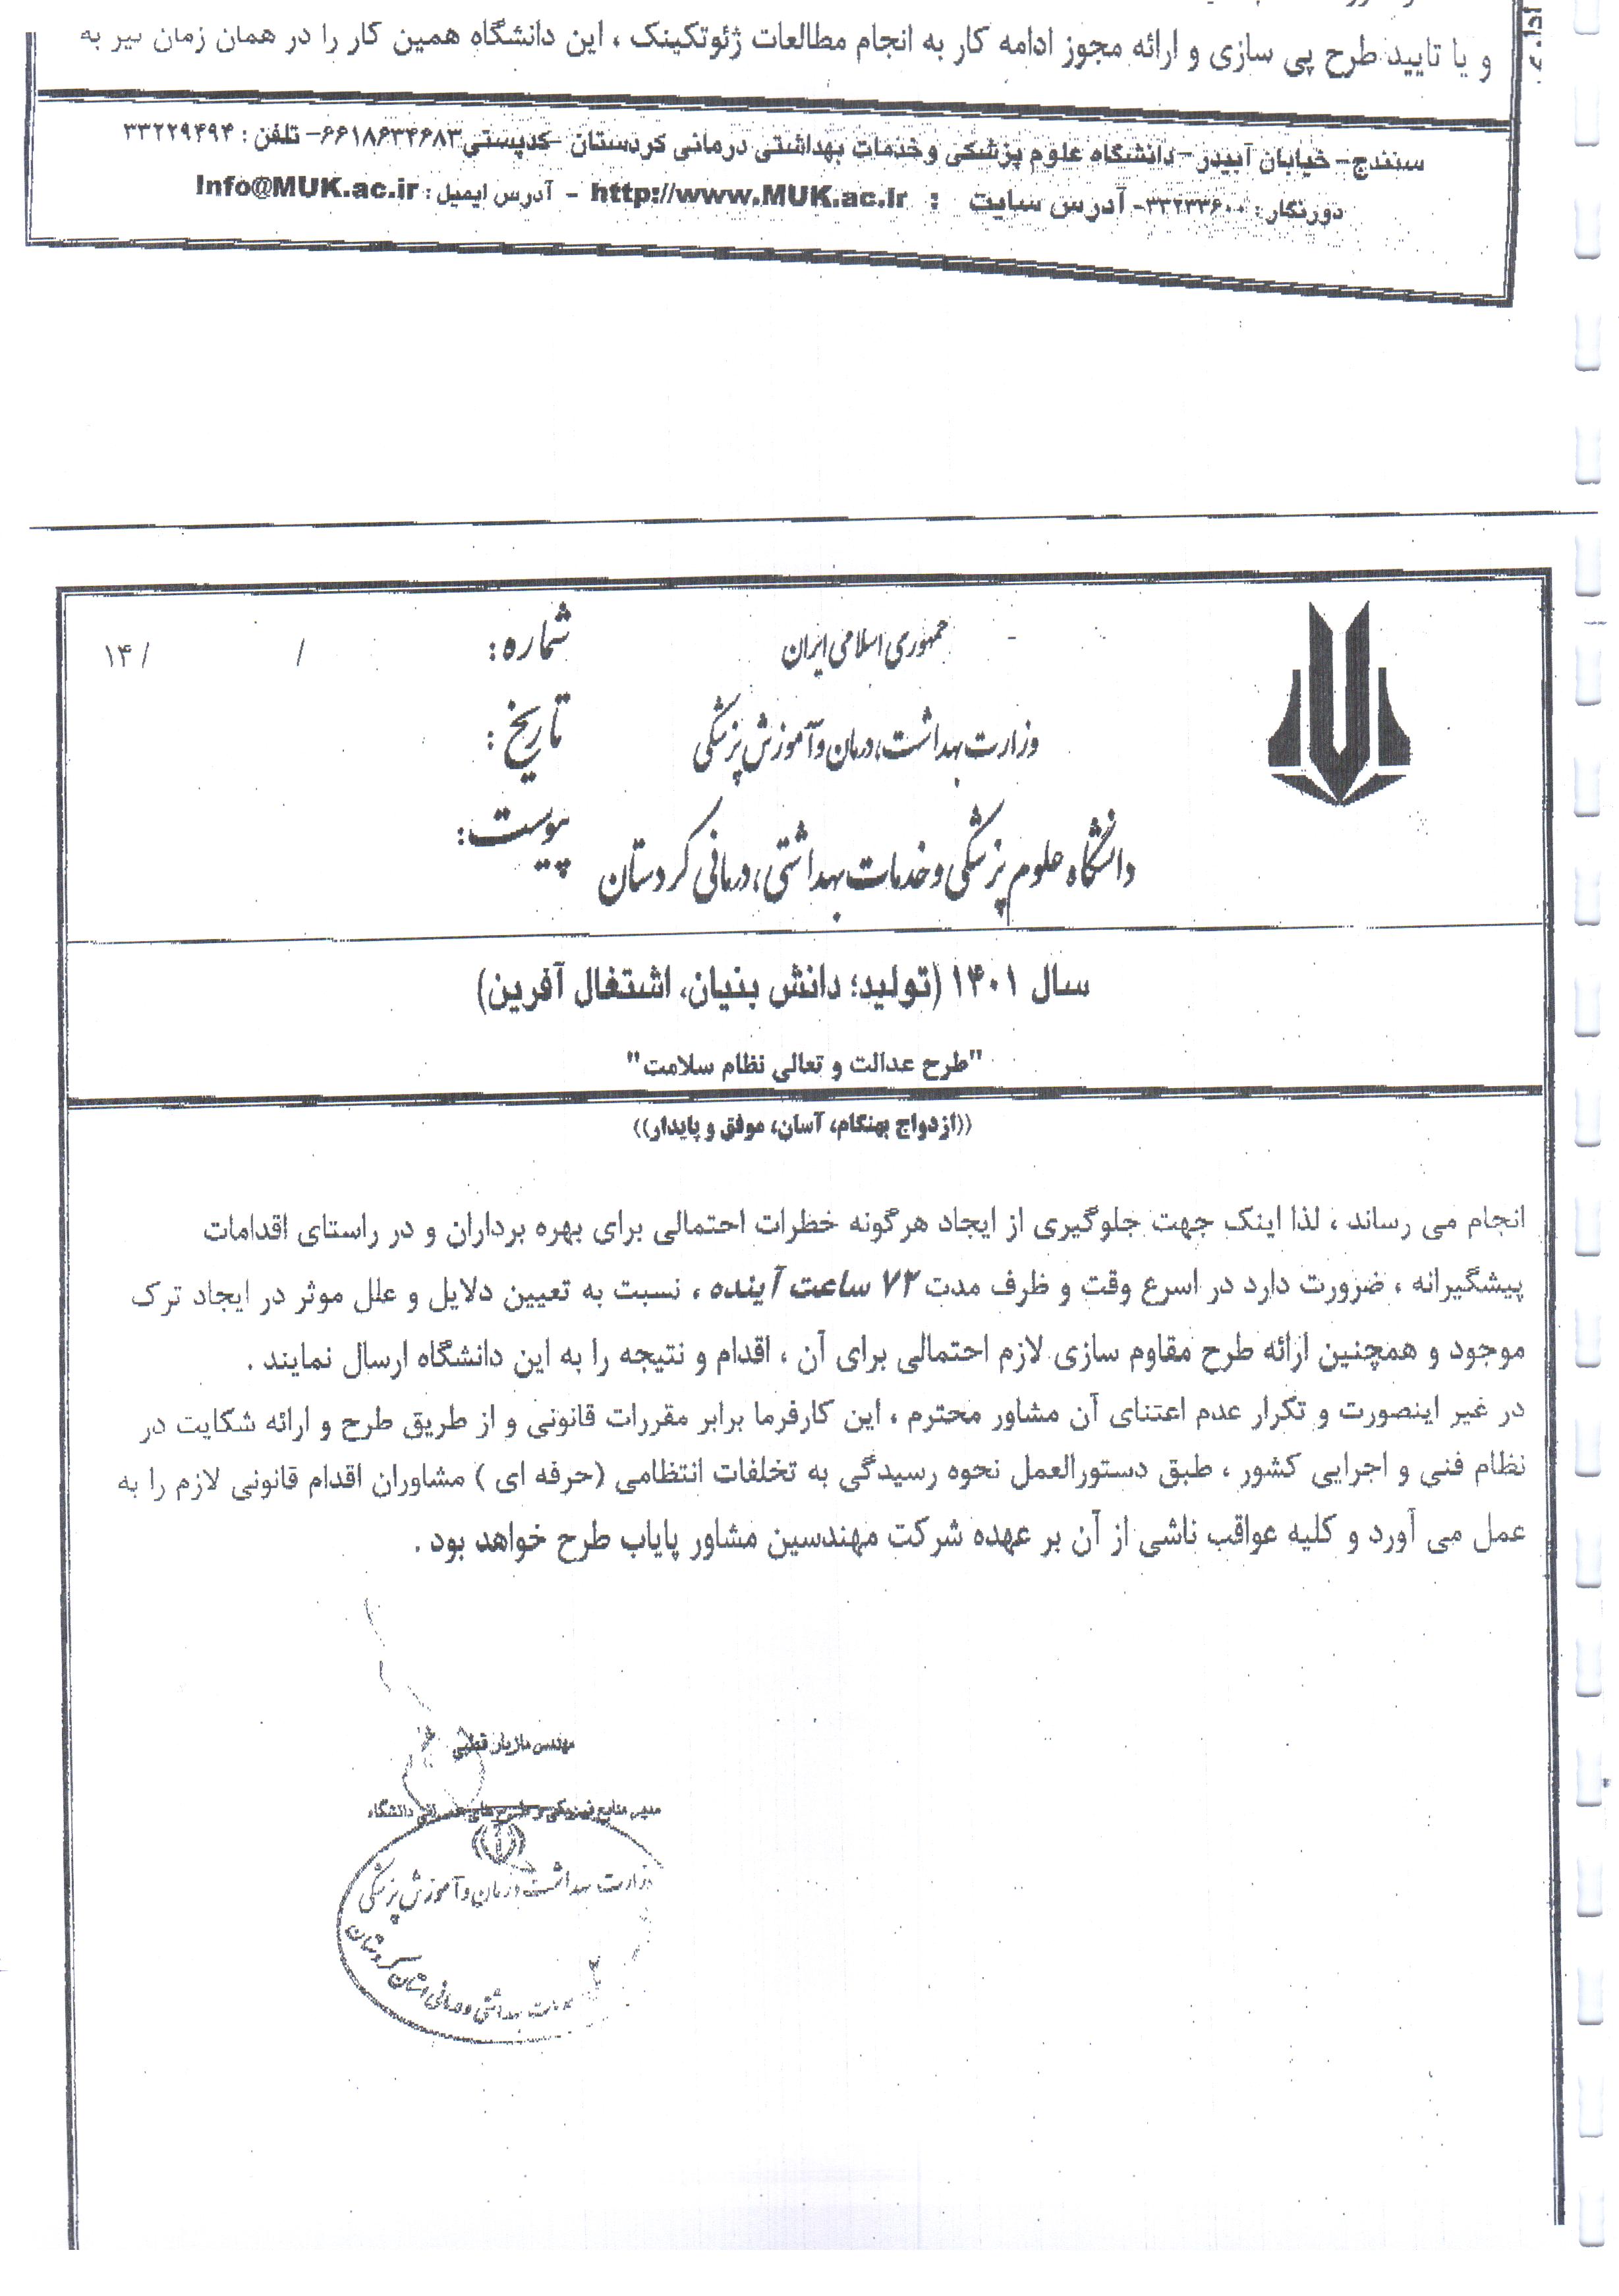 و یا تایید طرح پی سازی و ارائه مجوز ادامه کار به انجام مطالعات ژئوتکینک ، این دانشگاه همین کار را در همان زمان نیز به
سنندج- خیابان آبیدر- دانشگاه علوم پزشکی و خدمات بهداشتی درمانی کردستان -کدپستی ۶۶۱۸۶۳۴۶۸۳- تلفن : ۳۳۲۲۹۴۹۴
دورنگار : ۳۳۲۳۳۶۰۰- آدرس سایت : http://www.MUK.ac.ir - آدرس ایمیل : Info@MUK.ac.ir
جمهوری اسلامی ایران
وزارت بهداشت، درمان و آموزش پزشکی
دانشگاه علوم پزشکی و خدمات بهداشتی، درمانی کردستان
شماره: / /۱۴
تاریخ:
پیوست:
سال ۱۴۰۱ (تولید؛ دانش بنیان، اشتغال آفرین)
"طرح عدالت و تعالی نظام سلامت"
((ازدواج بهنگام، آسان، موفق و پایدار))
انجام می رساند ، لذا اینک جهت جلوگیری از ایجاد هرگونه خطرات احتمالی برای بهره برداران و در راستای اقدامات
پیشگیرانه ، ضرورت دارد در اسرع وقت و ظرف مدت ۷۲ ساعت آینده ، نسبت به تعیین دلایل و علل موثر در ایجاد ترک
موجود و همچنین ارائه طرح مقاوم سازی لازم احتمالی برای آن ، اقدام و نتیجه را به این دانشگاه ارسال نمایند .
در غیر اینصورت و تکرار عدم اعتنای آن مشاور محترم ، این کارفرما برابر مقررات قانونی و از طریق طرح و ارائه شکایت در
نظام فنی و اجرایی کشور ، طبق دستورالعمل نحوه رسیدگی به تخلفات انتظامی (حرفه ای ) مشاوران اقدام قانونی لازم را به
عمل می آورد و کلیه عواقب ناشی از آن بر عهده شرکت مهندسین مشاور پایاب طرح خواهد بود .
مهندس مازیار قطبی
مدیر منابع فیزیکی و طرح های عمرانی دانشگاه
وزارت بهداشت درمان و آموزش پزشکی
بهداشتی درمانی استان کردستان